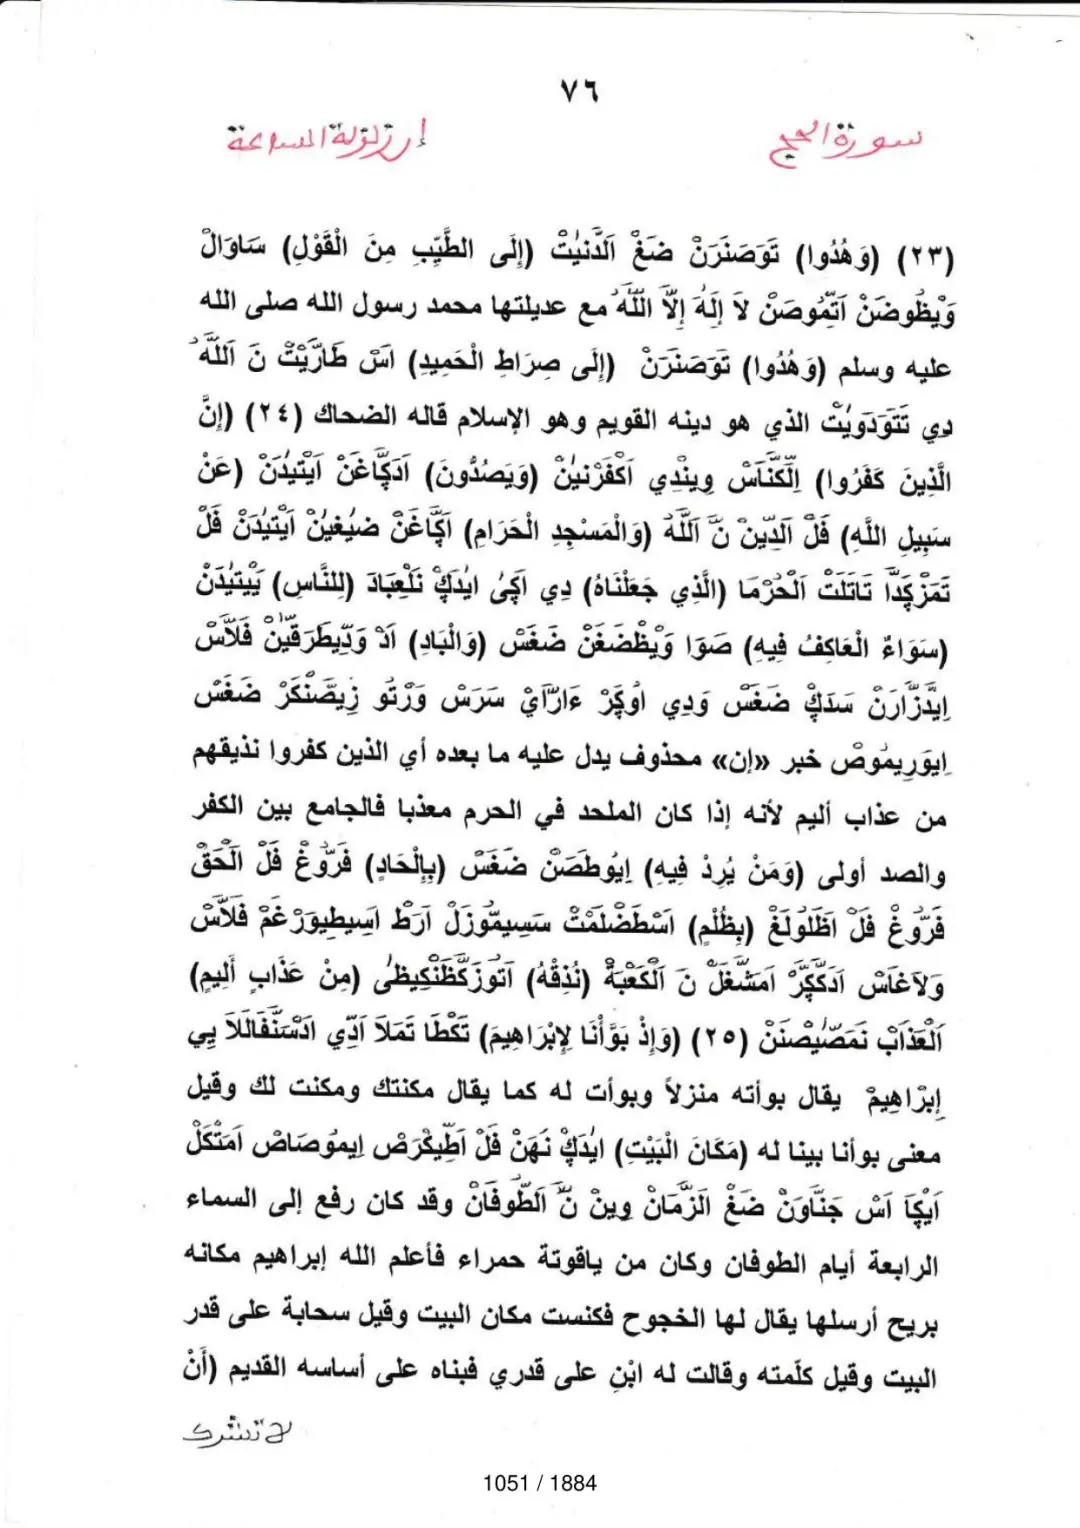 ٧٦
سورة الحج
إن زلزلة الساعة
(٢٣) (وَهُدُوا) تَوَصَنَرَنْ ضَغْ اَلدَّنيٰتْ (إِلَى الطَّيِّبِ مِنَ الْقَوْلِ) سَاوَالْ
وَيْظُوضَنْ اَتَّمُوصَنْ لَا إِلَهَ إِلاَّ اللَّهُ مع عديلتها محمد رسول الله صلى الله
عليه وسلم (وَهُدُوا) تَوَصَنَرَنْ (إِلَى صِرَاطِ الْحَمِيدِ) اَسْ طَارَّيْتْ نَ اَللَّهْ
دِي تَتَوَدَوِيْتْ الذي هو دينه القويم وهو الإسلام قاله الضحاك (٢٤) (إِنَّ
الَّذِينَ كَفَرُوا) اِلْكَنَّاسْ وِينْدِي اَكْفَرْنيٰنْ (وَيَصُدُّونَ) اَدَكَّاغَنْ اَيْتيٰدَنْ (عَنْ
سَبِيلِ اللَّهِ) فَلْ اَلدِّينْ نَّ اَللَّهْ (وَالْمَسْجِدِ الْحَرَامِ) اَكَّاغَنْ ضيٰغيٰنْ اَيْتيٰدَنْ فَلْ
تَمَزْكِدَّا تَاتَلَتْ اَلْحُرْمَا (الَّذِي جَعَلْنَاهُ) دِي اَكَىٰ ايٰدَكْ نَلْعِبَادَ (لِلنَّاسِ) يَيْتيٰدَنْ
(سَوَاءٌ الْعَاكِفُ فِيهِ) صَوَا وَيْظْضَغَنْ ضَغَسْ (وَالْبَادِ) اَدْ وَدِّيطَرَقيٰنْ فَلَّاسْ
اِيَدْزَّارَنْ سَدَكْ ضَغَسْ وَدِي اَوُكَرْ ءَارَّايْ سَرَسْ وَرْتُو زِيصَّنْكَرْ ضَغَسْ
اِيوَرِيمُوصْ خبر «إن» محذوف يدل عليه ما بعده أي الذين كفروا نذيقهم
من عذاب أليم لأنه إذا كان الملحد في الحرم معذبا فالجامع بين الكفر
والصد أولى (وَمَنْ يُرِدْ فِيهِ) اِيُوطَصَنْ ضَغَسْ (بِإِلْحَادٍ) فَرُّوغْ فَلْ اَلْحَقْ
فَرُّوغْ فَلْ اَظَلُولَغْ (بِظُلْمٍ) اَسْطَضْلَمْتْ سَسِيمُّوزَلْ اَرَطْ اَسِيطِيوَرْغَمْ فَلَّاسْ
وَلَاغَاسْ اَدَكْكَّرْ اَمَشْغَلْ نَ اَلْكَعْبَةْ (نُذِقْهُ) اَتَوُزْكَظْنَكِيظَىٰ (مِنْ عَذَابٍ أَلِيمٍ)
اَلْعَذَابْ نَمَصْيٰصْنَنْ (٢٥) (وَإِذْ بَوَّأْنَا لِإِبْرَاهِيمَ) تَكْطَا تَمَلَا اَدِّي اَدْسَنَّفَالَلَا يِي
اِبْرَاهِيمْ يقال بوأته منزلاً وبوأت له كما يقال مكنتك ومكنت لك وقيل
معنى بوأنا بينا له (مَكَانَ الْبَيْتِ) ايٰدَكْ نَهَنْ فَلْ اَطِيكْرَصْ اِيمُوصَاصْ اَمَتْكَلْ
اَيَكَا اَسْ جَنَّاوَنْ ضَغْ اَلزَّمَانْ وِينْ نَّ اَلطُّوفَانْ وقد كان رفع إلى السماء
الرابعة أيام الطوفان وكان من ياقوتة حمراء فأعلم الله إبراهيم مكانه
بريح أرسلها يقال لها الخجوج فكنست مكان البيت وقيل سحابة على قدر
البيت وقيل كلّمته وقالت له ابْنِ على قدري فبناه على أساسه القديم (أَنْ
لا تشرك
1051 / 1884